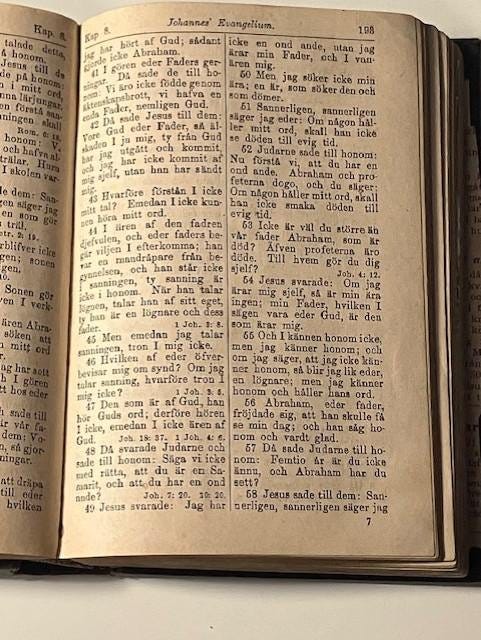 Kap. 8.
talade detta,
å honom.
Jesus till de
de på honom:
n i mitt ord,
nna lärjungar,
n förstå san-
ningen skall
Rom. 6: 18.
honom: V
och hafva al-
trälar. Huru
I skolen var-
de dem: San-
ngen säger jag
en som gör
rbliver icke
ngen; sonen
Sonen gör
en I verk-
ären Abra-
söken att
mitt ord
jag har sett
ch I gören
t hos eder
sade till
r fader.
r dem: Vo-
n, så gjor-
ningar.
att dräpa
t eder
hvilken
Kap 8.
Johannes' Evangelium.
193
jag har hört af Gud; sådant
gjorde icke Abraham.
41 I gören eder Faders ger-
ningar. Då sade de till ho-
nom: Vi äro icke födde genom
äktenskansbrott, vi hafva en
enda Fader, nemligen Gud.
42 Då sade Jesus till dem:
Vore Gud eder Fader, så äl-
skaden I ju mig, ty från Gud
har jag utgått och kommit,
och jag har icke kommit af
mig sjelf, utan han har sändt
mig.
43 Hvarföre förstån I icke
mitt tal? Emedan I icke kun-
nen höra mitt ord.
44 I ären af den fadren
djefvulen, och eder faders be-
gär viljen I efterkomma; han
var en mandråpare från be-
gynnelsen, och han står icke
i sanningen, ty sanning är
icke i honom. När han talar
lögnen, talar han af sitt eget,
ty han är en lögnare och dess
fader.
1 Joh. 3: 8.
45 Men emedan jag talar
sanningen, tron I mig icke.
46 Hvilken af eder öfver-
bevisar mig om synd? Om jag
talar sanning, hvarföre tron I
mig icke?
1 Joh. 3: 5.
47 Den som är af Gud, han
hör Guds ord; derföre hören
I icke, emedan I icke ären af
Gud.
Joh. 18: 37. 1 Joh. 4: 6.
48 Då svarade Judarne och
sade till honom: Säga vi icke
med rätta, att du är en Sa-
marit, och att du har en ond
ande?
Joh. 7: 20. 10: 20.
49 Jesus svarade: Jag har
icke en ond ande, utan jag
ärar min Fader, och I van-
ären mig.
50 Men jag söker icke min
ära; en är, som söker den och
som dömer.
51 Sannerligen, sannerligen
säger jag eder: Om någon hål-
ler mitt ord, skall han icke
se döden till evig tid.
52 Judarne sade till honom:
Nu förstå vi, att du har en
ond ande. Abraham och pro-
feterna dogo, och du säger:
Om någon håller mitt ord, skall
han icke smaka döden till
evig tid.
53 Icke är väl du större än
vår fader Abraham, som är
död? Äfven profeterna äro
döde. Till hvem gör du dig
sjelf?
Joh. 4: 12.
54 Jesus svarade: Om jag
ärar mig sjelf, så är min ära
ingen; min Fader, hvilken I
sägen vara eder Gud, är den
som ärar mig.
55 Och I kännen honom icke,
men jag känner honom; och
om jag säger, att jag icke kän-
ner honom, så blir jag lik eder,
en lögnare; men jag känner
honom och håller hans ord.
56 Abraham, eder fader,
fröjdade sig, att han skulle få
se min dag; och han såg ho-
nom och vardt glad.
57 Då sade Judarne till ho-
nom: Femtio år är du icke
ännu, och Abraham har du
sett?
58 Jesus sade till dem: San-
nerligen, sannerligen säger jag
7